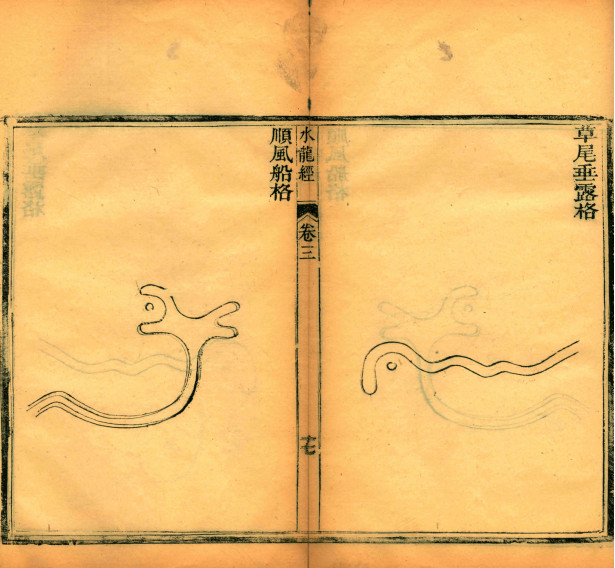 草尾垂露格
水龍經
卷三
十七
順風船格